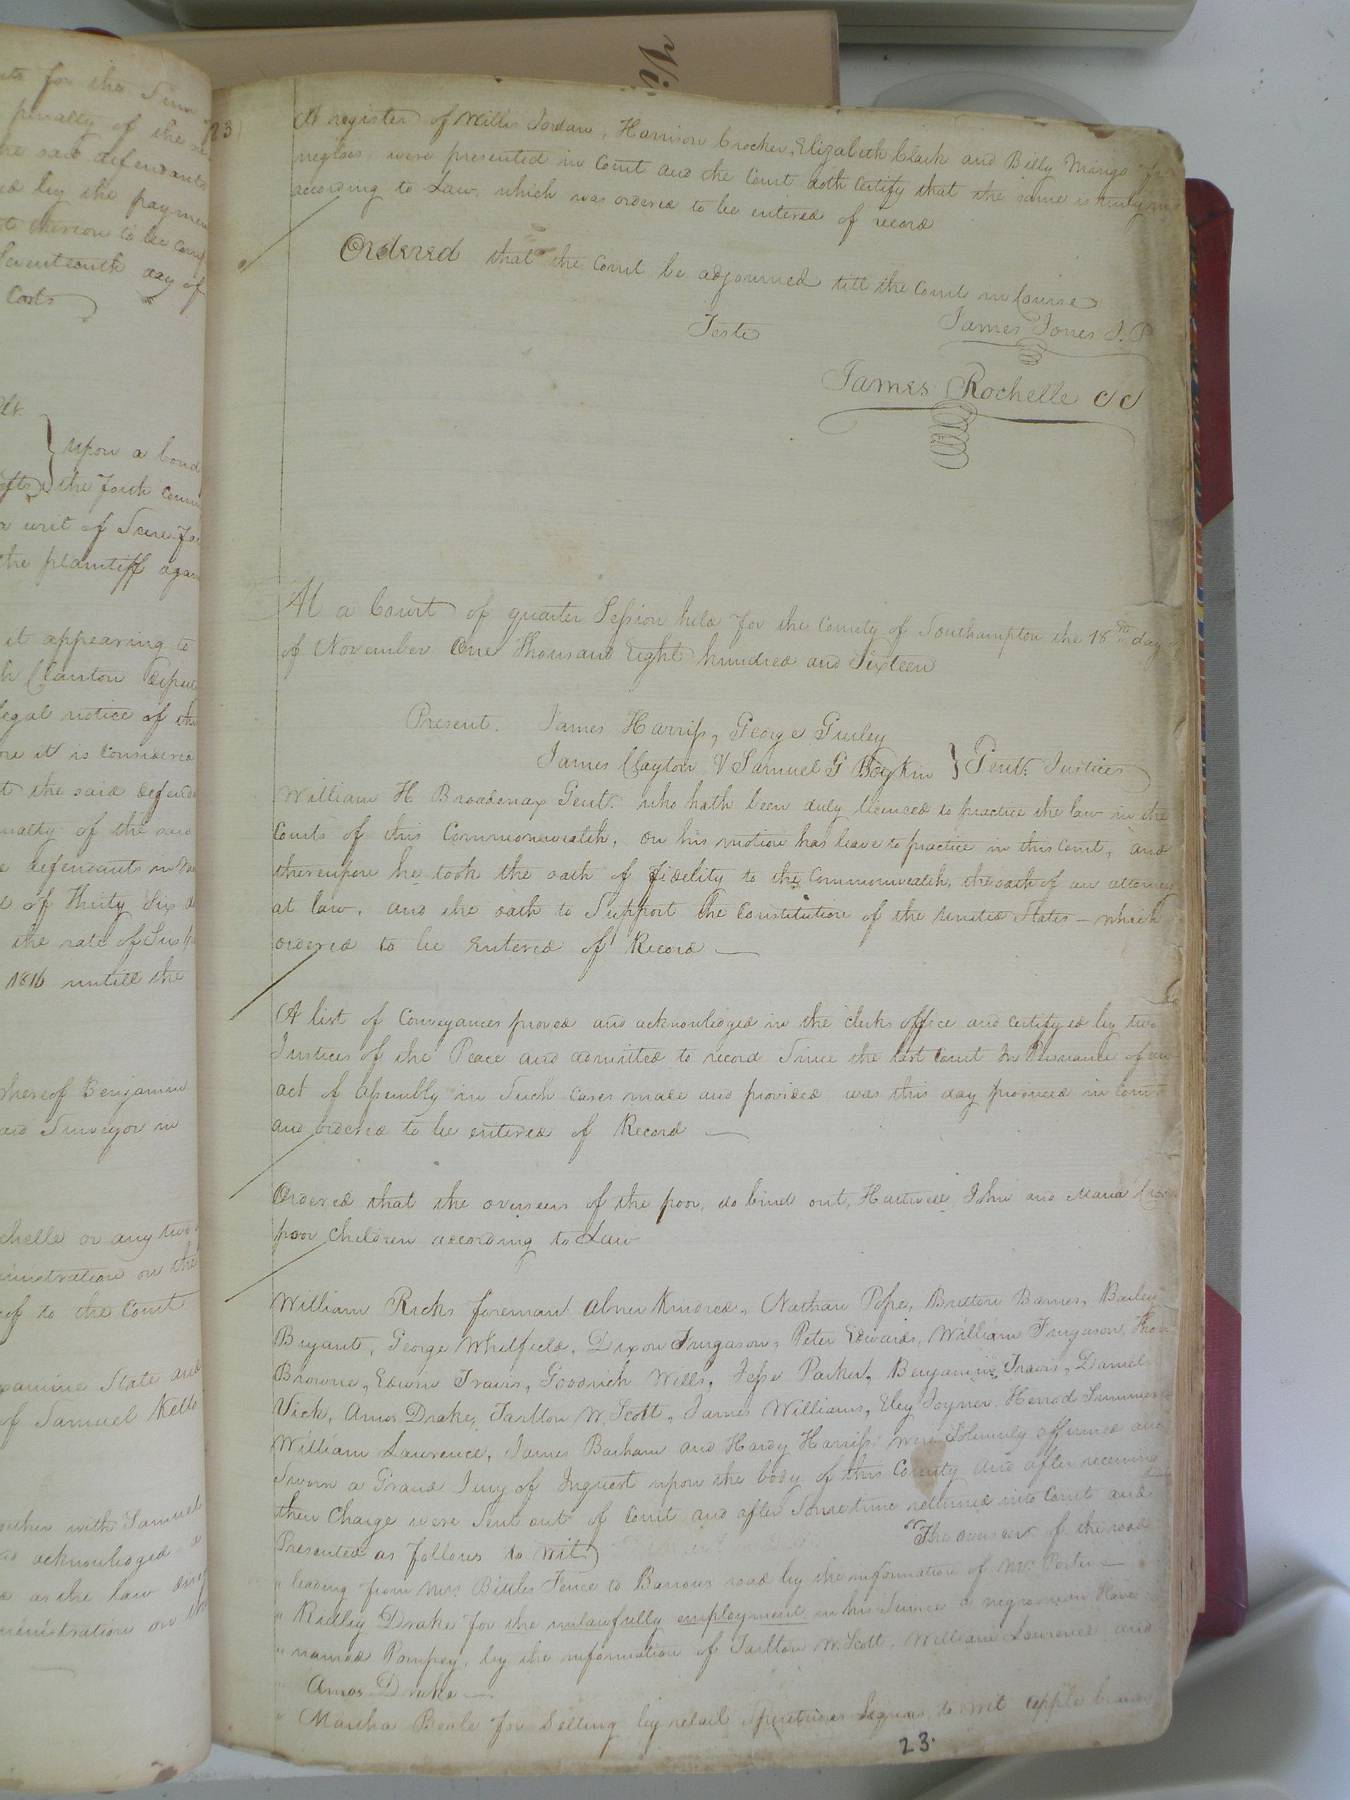 nts for the Sum
penalty of the
he said defendants
ed by the paymen
t thereon to be
Seventeenth day of
Costs
upon a bond
the forth
a writ of Scire fa
the plaintiff again
it appearing to
h Clanton
legal notice of the
ore it is considered
t the said defend
nalty of the said
e defendants
d of Thirty Six
the rate of Six
1816 untill the
thereof Benjamin
and Surveyor
chelle or any two
inistration on the
of to the Court
xamine State and
of Samuel Kello
gether with Samuel
acknowledged a
as the law
ministration on the
23
A register of Willis Jordan, Harrison Crocker, Elizabeth Clark and Billy Mingo
negroes, were presented in Court and the Court doth Certify that the same is truly
according to Law, which was ordered to be entered of record
Ordered that the Court be adjourned till the Court in Course
Teste James Jones J. P
James Rochelle CC
At a Court of quarter Session held for the County of Southampton the 18th day
of November One Thousand Eight hundred and Sixteen
Present. James Harriss, George Gurley
James Clayton & Samuel G Boykin } Gent. Justices
William H Broadnax Gent. who hath been duly licenced to practice the law in the
Courts of this Commonwealth, on his motion has leave to practice in this Court, and
thereupon he took the oath of fidelity to the Commonwealth, the oath of an attorney
at law, and the oath to Support the Constitution of the United States – which
ordered to be Entered of Record —
A list of Conveyances proved and acknowledged in the clerks office and certifyed by two
Justices of the Peace and admitted to record Since the last Court In Pursuance of an
act of Assembly in Such cases made and provided was this day produced in Court
and ordered to be entered of Record —
Ordered that the overseers of the poor, do bind out, Hartwell, John and Maria
poor Children according to Law
William Ricks foreman Abner Kindred, Nathan Pope, Britton Barnes, Bailey
Bryant, George Whitfield, Dixon Furgason, Peter Edwards, William Furgason,
Browne, Edwin Travis, Goodrich Wells, Jesse Parker, Benjamin Travis, Daniel
Vick, Amos Drake, Tarlton W. Scott, James Williams, Eley Joyner, Herrod Summerell
William Lawrence, James Barham and Hardy Harriss were Solemnly affirmed and
Sworn a Grand Jury of Inquest upon the body of this County and after receiving
their Charge were Sent out of Court and after Some time returned into Court and
Presented as follows to Wit) "The overseer of the road
" leading from Mrs Bittles Fence to Barrows road by the information of Mr. Porter —
" Ridley Drake for the unlawfully employment in his Service a negro man Slave
" named Pompey, by the information of Tarlton W. Scott, William Lawrence and
" Amos Drake —
" Martha Beale for Selling by retail Spiritious Liquors, to wit apple brandy
23.